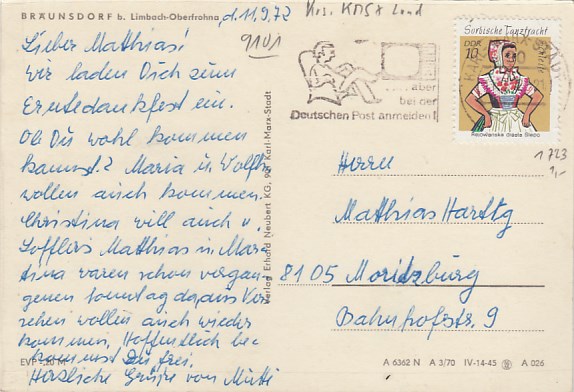 BRÄUNSDORF b. Limbach-Oberfrohna, d. 11.9.72
Krs. KMSt Land
9101
Lieber Matthias!
wir laden Dich zum
Erntedankfest ein.
Ob Du wohl kommen
kannst? Maria u. Wolfth.
wollen auch kommen.
Christina will auch u.
Löfflers Matthias u. Mar-
tina waren schon vergan-
genen Sonntag da, aus Ver-
sehen wollen auch wieder
kommen, Hoffentlich be-
kommst Du frei.
Herzliche Grüße von Mutti
EVP -,20 M
Verlag Erhard Neubert KG, Karl-Marx-Stadt
... aber
bei der
Deutschen Post anmelden!
Sorbische Tanztracht
DDR
10
Schleife
1723
1,-
Herrn
Matthias Hartig
8105 Moritzburg
Bahnhofstr. 9
A 6362 N A 3/70 IV-14-45 A 026